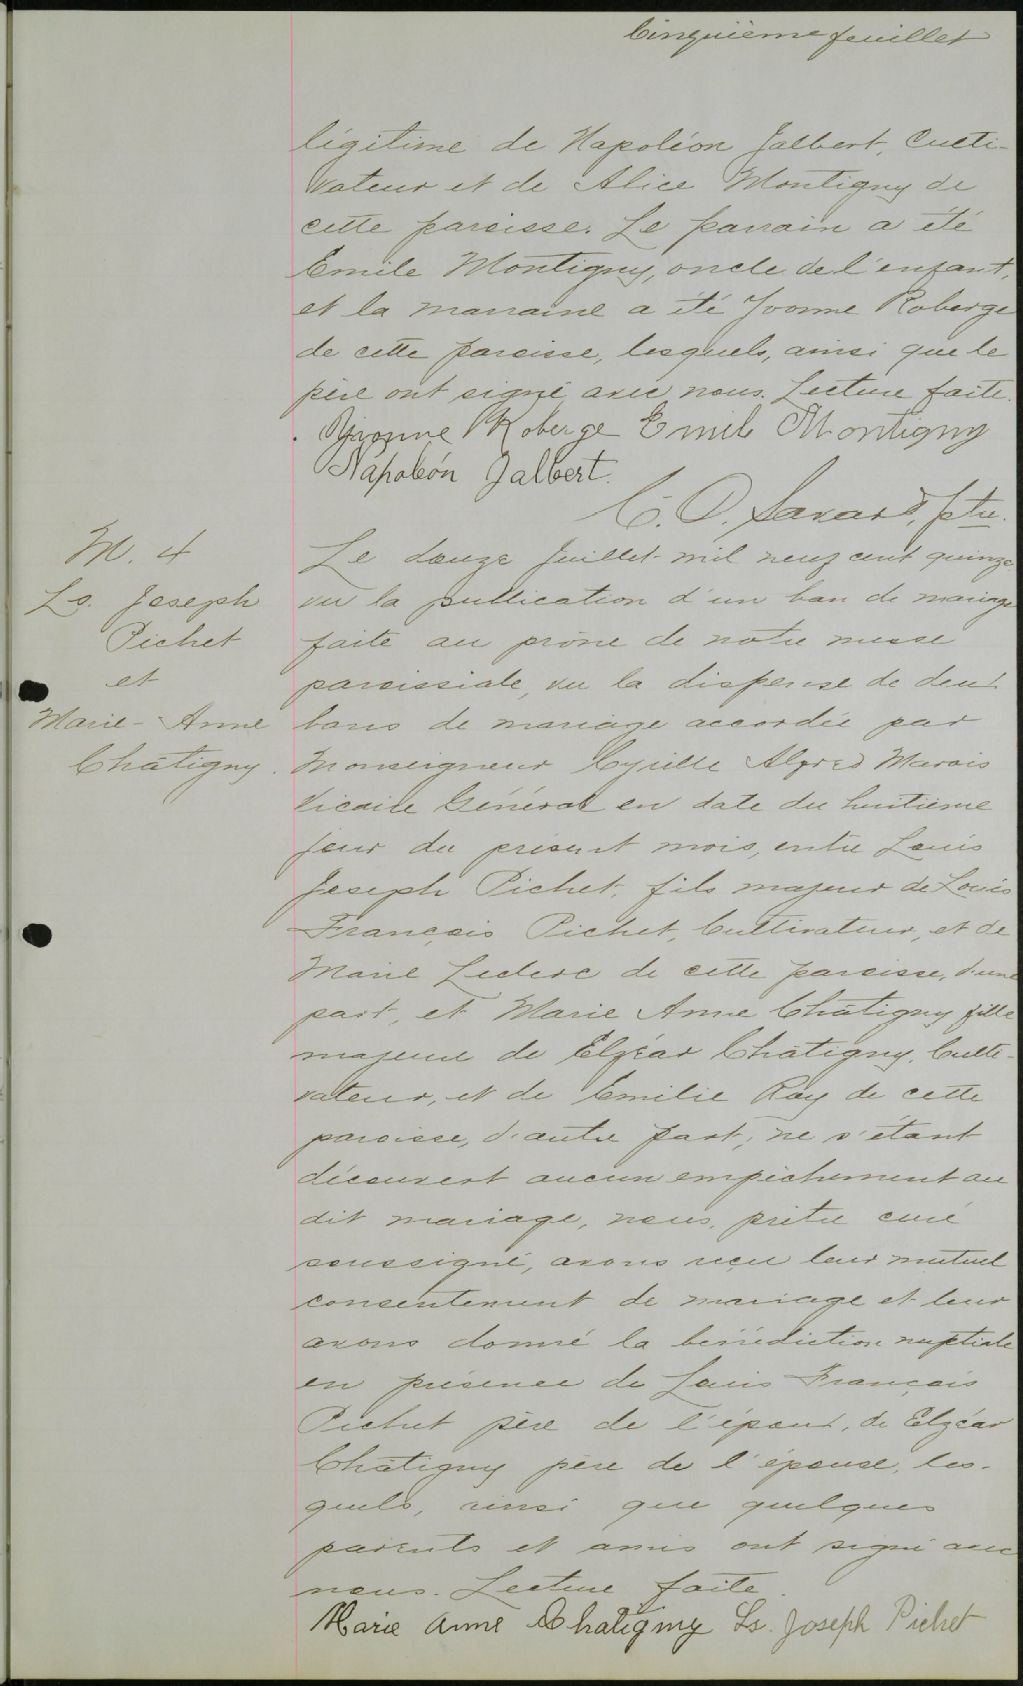 Cinquième feuillet
légitime de Napoléon Jalbert, Culti-
vateur et de Alice Montigny de
cette paroisse. Le parrain a été
Emile Montigny, oncle de l'enfant,
et la marraine a été Yvonne Roberge
de cette paroisse, lesquels, ainsi que le
père ont signé avec nous. Lecture faite.
Yvonne Roberge Emile Montigny
Napoléon Jalbert.
C. O. Savard, ptre.
M. 4
Ls. Joseph
Pichet
et
Marie-Anne
Châtigny.
Le douze Juillet mil neuf cent quinze,
vu la publication d'un ban de mariage
faite au prône de notre messe
paroissiale, vu la dispense de deux
bans de mariage accordée par
Monseigneur Cyrille Alfred Marois
Vicaire Général en date du huitième
jour du présent mois, entre Louis
Joseph Pichet, fils majeur de Louis
François Pichet, Cultivateur, et de
Marie Leclerc de cette paroisse, d'une
part, et Marie Anne Châtigny fille
majeure de Elzéar Châtigny, Culti-
vateur, et de Emilie Roy de cette
paroisse, d'autre part, ne s'étant
découvert aucun empêchement au
dit mariage, nous, prêtre curé
soussigné, avons reçu leur mutuel
consentement de mariage et leur
avons donné la bénédiction nuptiale
en présence de Louis François
Pichet père de l'époux, de Elzéar
Châtigny père de l'épouse, les-
quels, ainsi que quelques
parents et amis ont signé avec
nous. Lecture faite.
Marie Anne Chatigny Ls. Joseph Pichet